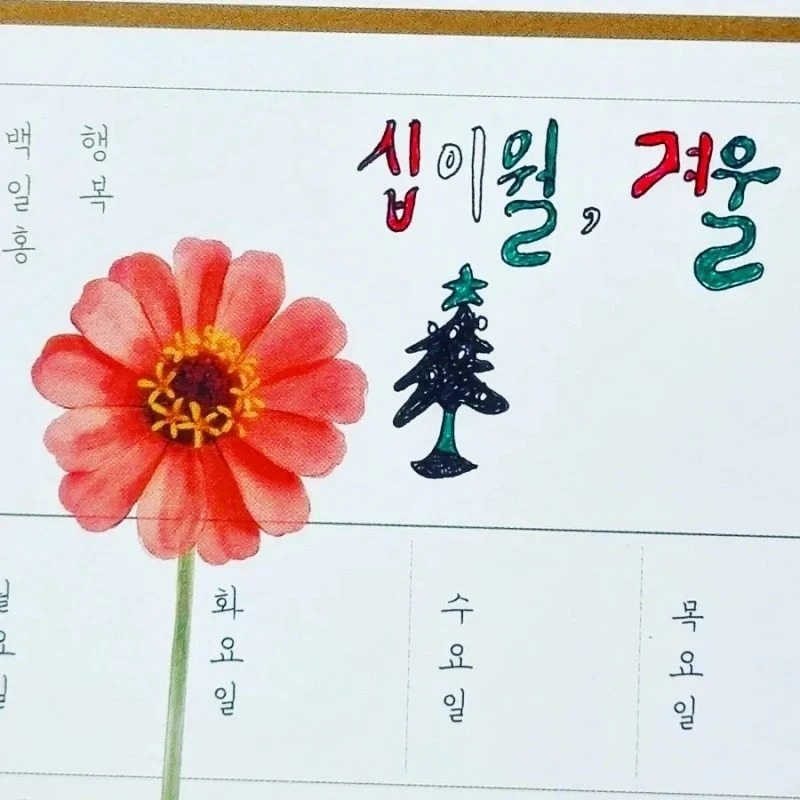 백일홍
행복
십이월, 겨울
월요일
화요일
수요일
목요일